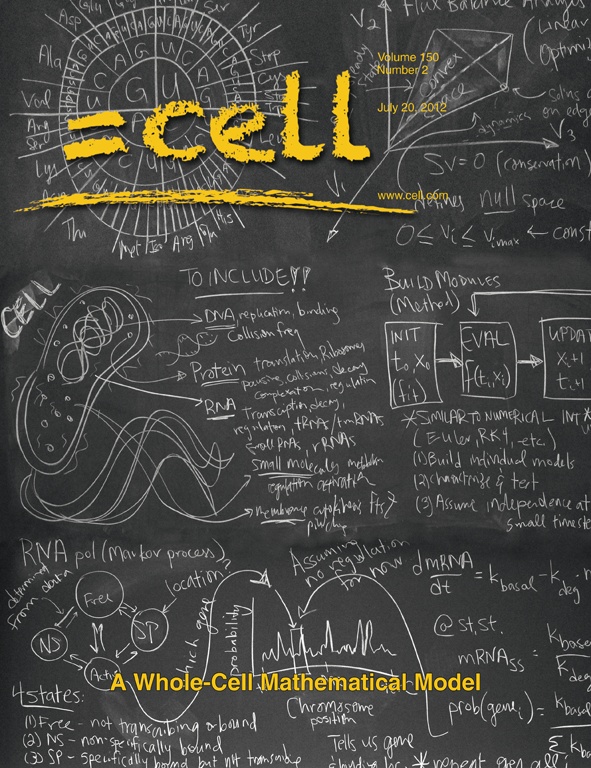 Volume 150
Number 2
July 20, 2012
=cell
www.cell.com
V2
Flux Balance Analysis
(Linear
Optimi
V3
Convex
dynamics
Sv=0 (conservation)
null space
0≤ vi ≤ vimax ← const
Asp
Glu
Ser
Tyr
Ala
Stop
Val
Cys
Arg
Ser
Lys
Leu
Thr
Met
Arg
His
CELL
TO INCLUDE!!
DNA replication, binding
Collision freq
Protein translation, Ribosomes
RNA
Transcription decay,
regulation, tRNAs/tmRNAs
small RNAs, rRNAs
small molecules metabolism
regulation activation
membrane
BUILD MODULES
(Method)
INIT
t0, x0
EVAL
f(ti, xi)
UPDAT
xi+1
ti+1
*SIMILAR TO NUMERICAL INT
(Euler, RK4, etc.)
(1) Build individual models
(2) characterize & test
(3) Assume independence at
small timeste
RNA pol (Markov process)
determined
from data
Free
NS
SP
Active
location
which gene
probability
Assuming
no regulation
for now
Chromosome
position
Tells us gene
dmRNA/dt = kbasal - kdeg
@ st.st.
mRNAss
prob(genei)
A Whole-Cell Mathematical Model
4 states:
(1) Free - not transcribing or bound
(2) NS - non-specifically bound
(3) SP - specifically bound but not transcribing